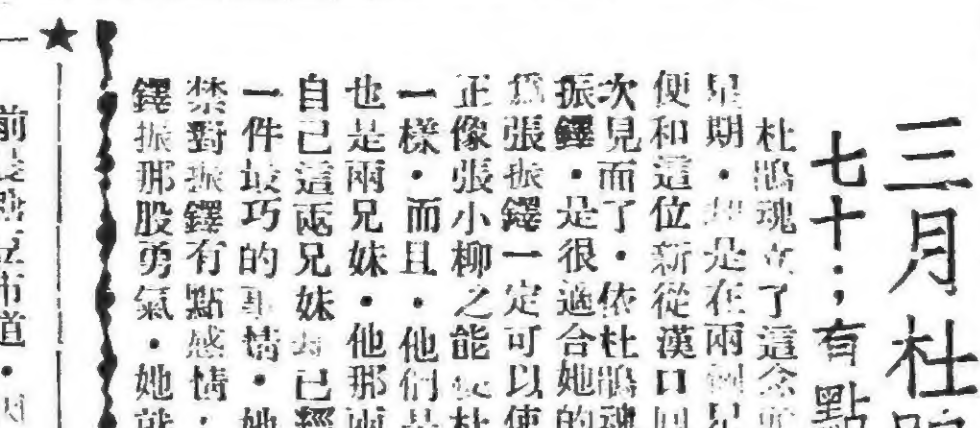 三月杜
七十；有點
杜鵑魂立了這念
星期．却是在兩個星
便和這位新從漢口回
次見面了．依杜鵑魂
振鐸．是很適合她的
爲張振鐸一定可以使
正像張小柳之能使杜
一樣．而且．他們是
也是兩兄妹．他那兩
自己這兩兄妹却已經
一件最巧的事情．她
禁對振鐸有點感情．
鐸振那股勇氣．她就
★
前 布道．